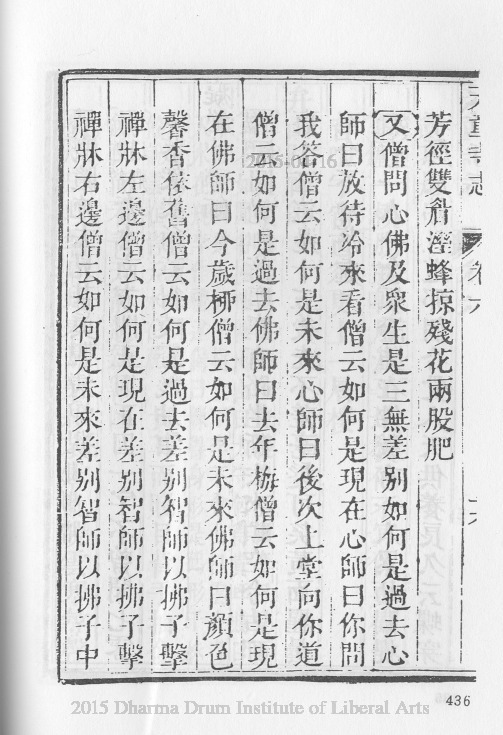 天童寺志 卷六
芳徑雙𦛨溼蜂掠殘花兩股肥
又僧問心佛及衆生是三無差別如何是過去心
師曰放待冷來看僧云如何是現在心師曰你問
我答僧云如何是未來心師曰後次上堂向你道
僧云如何是過去佛師曰去年梅僧云如何是現
在佛師曰今歲柳僧云如何是未來佛師曰顏色
馨香依舊僧云如何是過去差別智師以拂子擊
禪牀左邊僧云如何是現在差別智師以拂子擊
禪牀右邊僧云如何是未來差別智師以拂子中
436
2015 Dharma Drum Institute of Liberal Arts